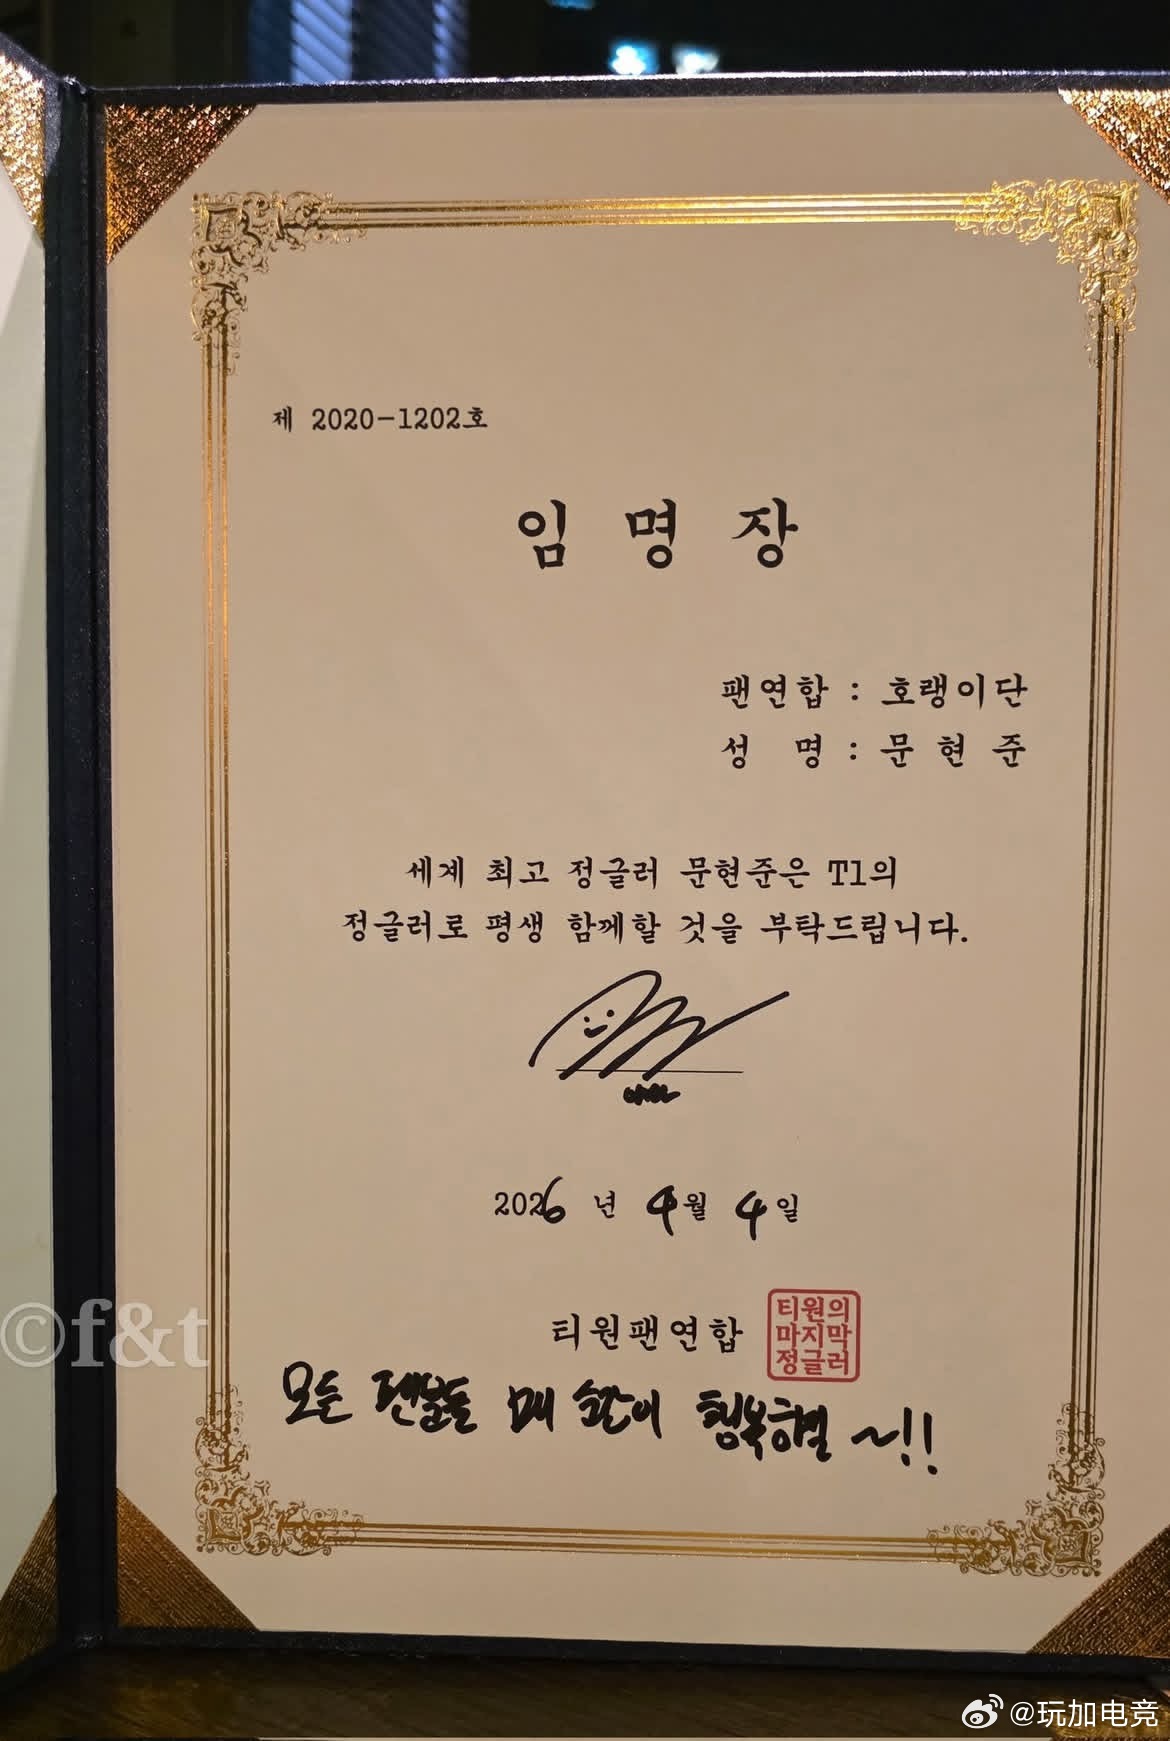 제 2020-1202호
임 명 장
팬연합 : 호랭이단
성 명 : 문 현 준
세계 최고 정글러 문현준은 T1의
정글러로 평생 함께할 것을 부탁드립니다.
2026 년 4월 4일
티원팬연합
티원의
마지막
정글러
모든 팬분들 매 순간이 행복하길 ~!!
©f&t
@玩加电竞